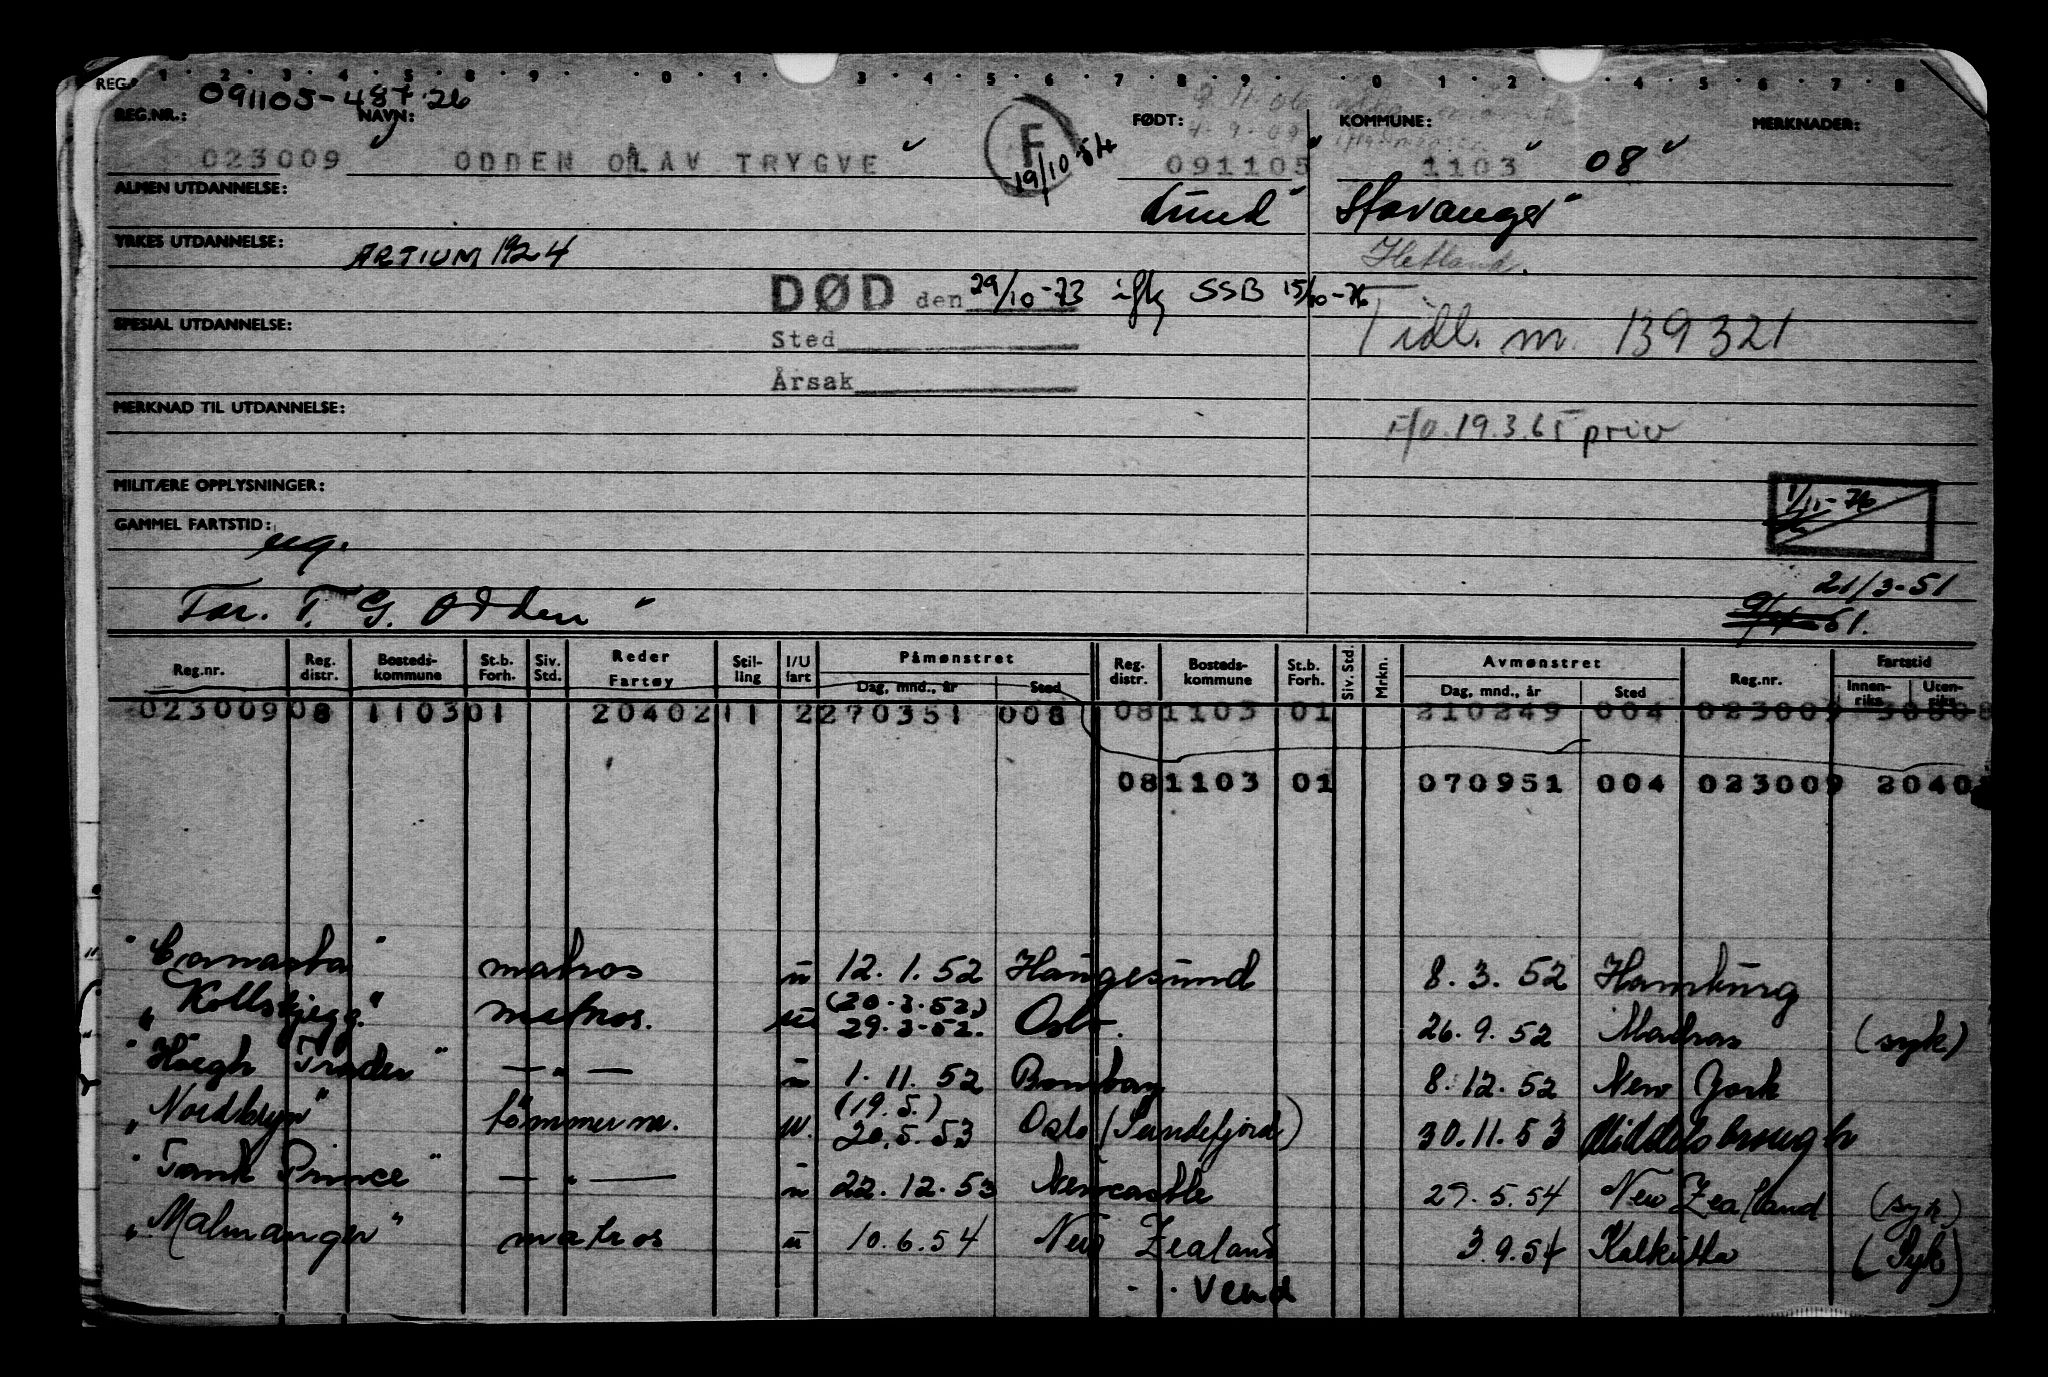 REG.
1 · 2 · 3 · 4 · 5 · 8 · 9 · 0 · 1 · 3 · 4 · 5 · 6 · 7 · 8 · 9 · 0 · 1 · 2 · 4 · 5 · 6 · 7 · 8
091105-487 26
REG.NR.: NAVN: FØDT: KOMMUNE: MERKNADER:
023009 ODDEN OLAV TRYGVE F 19/10 54 091105 1103 08
ALMEN UTDANNELSE: Lund Stavanger
YRKES UTDANNELSE: ARTIUM 1924 Hetland.
DØD den 29/10-73 iflg SSB 15/10-76
SPESIAL UTDANNELSE: Tidl. nr. 139321
Sted
Årsak
MERKNAD TIL UTDANNELSE:
F/O. 19.3.65 priv
MILITÆRE OPPLYSNINGER:
1/11-76
GAMMEL FARTSTID: ug.
21/3-51
Far. T. G. Odden
Reg.nr. Reg. distr. Bosteds-kommune St.b. Forh. Siv. Std. Reder Fartøy Stil-ling I/U fart Påmønstret Dag, mnd., år Sted Reg. distr. Bosteds-kommune St.b. Forh. Siv. Std. Mrkn. Avmønstret Dag, mnd., år Sted Reg.nr. Fartstid Innen-riks Uten-riks
023009 08 1103 01 20402 11 2 270351 008 08 1103 01 210249 004 023009 30808
08 1103 01 070951 004 023009 2040
matros u 12. 1. 52 Haugesund 8. 3. 52 Hamburg
"Kollbjørg" matros. u (20.3.52.) 29.3-52. Oslo. 26. 9. 52 Madras (syk)
"Høegh Trader" — " — u 1. 11. 52 Bombay 8. 12. 52 New York
"Nordbryn" tømmerm. u. (19.5.) 20.5.53 Oslo (Sandefjord) 30.11.53 Middelsbrough
"Tank Prince" — " — u 22.12.53 Newcastle 29.5.54 New Zealand (syk)
"Malmanger" matros u 10.6.54 New Zealand 3.9.54 Kalkutta (Syk)
- . Vend